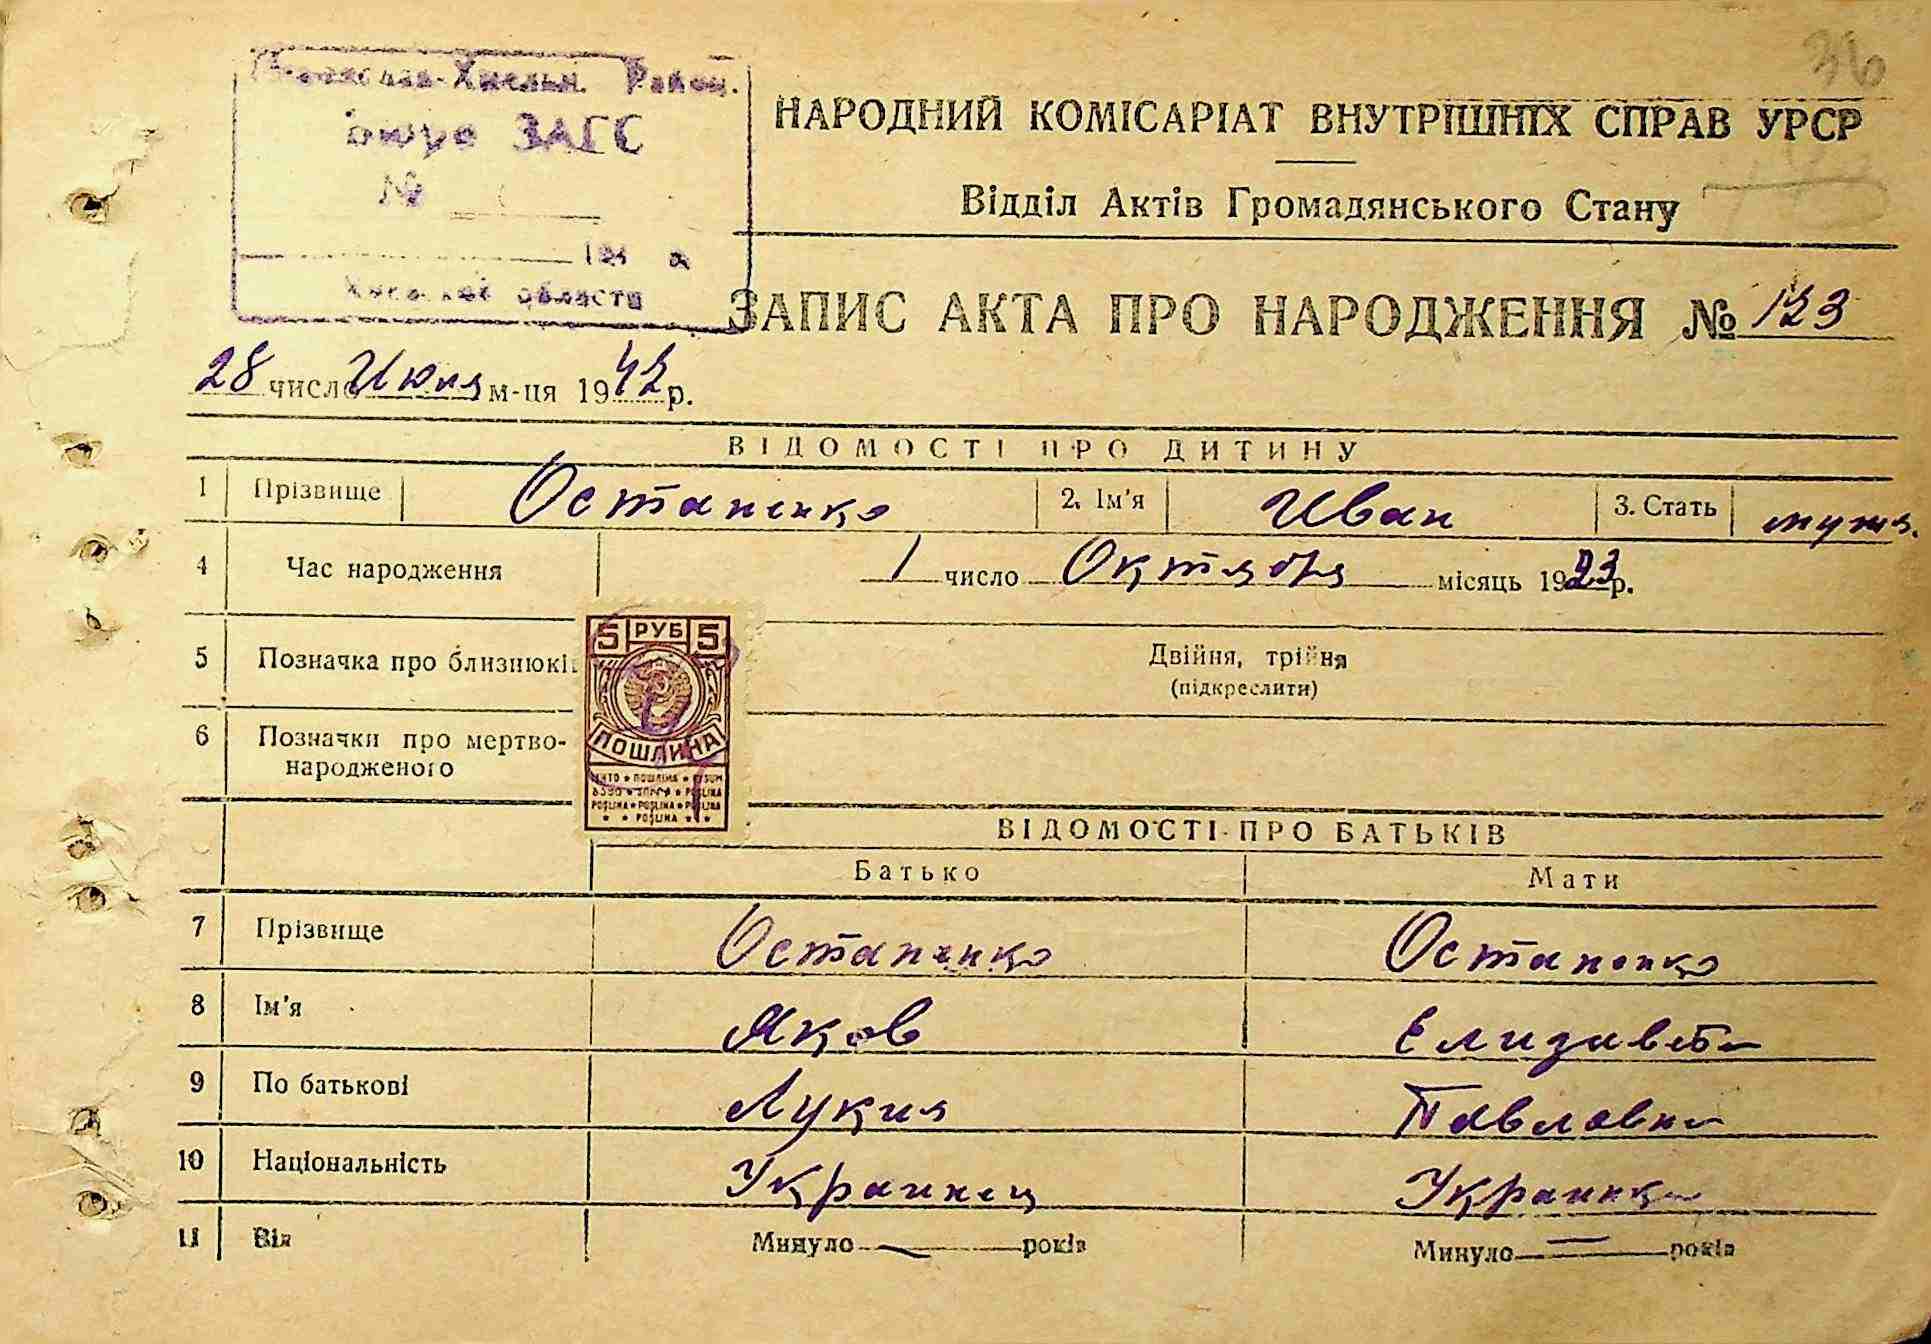 36
Хмельн. Район.
Бюро ЗАГС
№
194
области
НАРОДНИЙ КОМІСАРІАТ ВНУТРІШНІХ СПРАВ УРСР
Відділ Актів Громадянського Стану
ЗАПИС АКТА ПРО НАРОДЖЕННЯ № 123
28 число Июля м-ця 1942 р.
ВІДОМОСТІ ПРО ДИТИНУ
1 Прізвище Остапенко 2. Ім'я Иван 3. Стать муж.
4 Час народження 1 число Октября місяць 1923 р.
5 Позначка про близнюкі Двійня, трійня
(підкреслити)
6 Позначки про мертво-
народженого
5 РУБ 5
ПОШЛИНА
ВІДОМОСТІ ПРО БАТЬКІВ
Батько Мати
7 Прізвище Остапенко Остапенко
8 Ім'я Яков Елизавета
9 По батькові Лукич Павловна
10 Національність Украинец Украинка
11 Вік Минуло — років Минуло — років